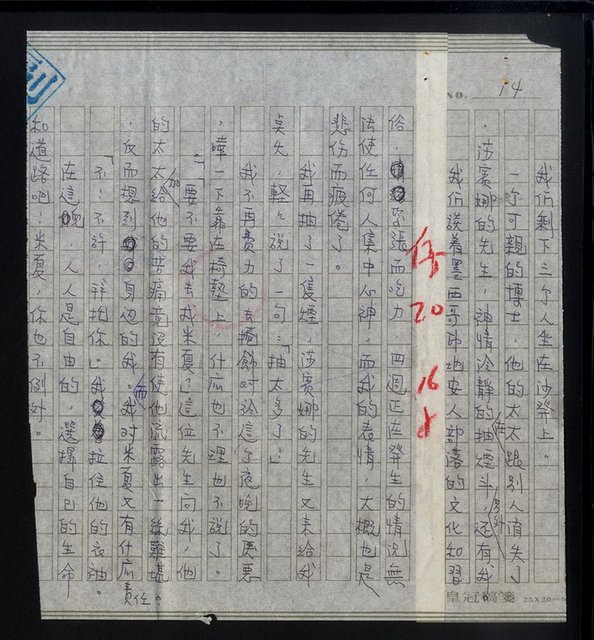 NO. 14
我們剩下三个人坐在沙發上。
一个可親的博士,他的太太跟別人消失了
,莎賓娜的先生,神情冷靜的在抽煙斗,還有我
我們談着墨西哥印地安人部落的文化和習
俗,緊張而吃力,四週正在發生的情況無
法使任何人集中心神,而我的表情,大概也是
悲伤而疲倦了。
我再抽了一隻煙,莎賓娜的先生又來給我
點火,輕々說了一句:「抽太多了!」
我不再費力的去掩飾对於這个夜晚的厭惡
,嘩一下靠在椅墊上,什麼也不理也不說了。
「要不要我去找米夏?」這位先生问我,他
的太太加給他的苦痛竟沒有使他流露出一絲難堪。
,反而想到身边的我。而我对米夏又有什麼責任。
「不!不許!拜托你。」我拉住他的衣袖。
在這兒,人人是自由的,選擇自己的生命
和道路吧!米夏,你也不例外。
20
16
皇冠稿箋 25×20=5